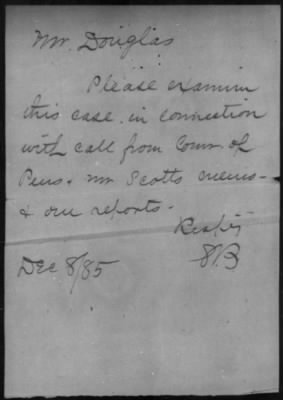 Mr. Douglas
Please examin
this case in connection
with call from Comr. of
Pens. Mr Scotts mem-
& our reports.
Respy
Dec 8/85